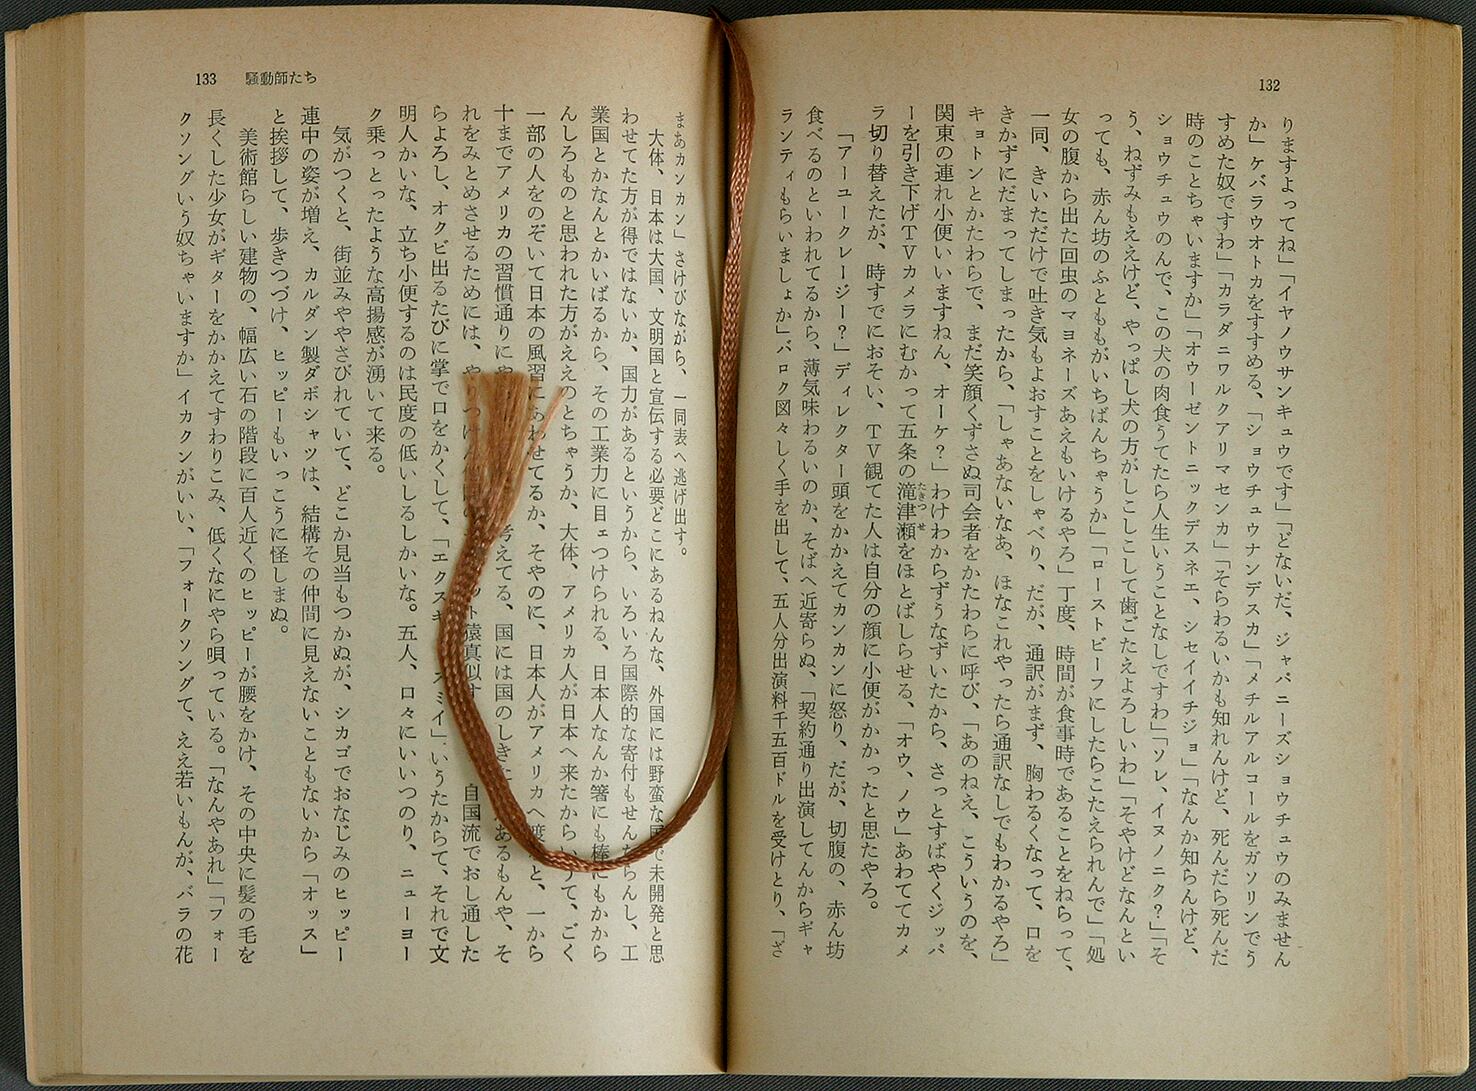 132
りますよってね」「イヤノウサンキュウです」「どないだ、ジャパニーズショウチュウのみません
か」ケバラウオトカをすすめる、「ショウチュウナンデスカ」「メチルアルコールをガソリンでう
すめた奴ですわ」「カラダニワルクアリマセンカ」「そらわるいかも知れんけど、死んだら死んだ
時のことちゃいますか」「オウーゼントニックデスネエ、シセイイチジョ」「なんか知らんけど、
ショウチュウのんで、この犬の肉食うてたら人生いうことなしですわ」「ソレ、イヌノニク?」「そ
う、ねずみもええけど、やっぱし犬の方がしこしこして歯ごたえよろしいわ」「そやけどなんとい
っても、赤ん坊のふとももがいちばんちゃうか」「ローストビーフにしたらこたえられんで」「処
女の腹から出た回虫のマヨネーズあえもいけるやろ」丁度、時間が食事時であることをねらって、
一同、きいただけで吐き気もよおすことをしゃべり、だが、通訳がまず、胸わるくなって、口を
きかずにだまってしまったから、「しゃあないなあ、ほなこれやったら通訳なしでもわかるやろ」
キョトンとかたわらで、まだ笑顔くずさぬ司会者をかたわらに呼び、「あのねえ、こういうのを、
関東の連れ小便いいますねん、オーケ?」わけわからずうなずいたから、さっとすばやくジッパ
ーを引き下げTVカメラにむかって五条の滝津瀬をほとばしらせる、「オウ、ノウ」あわててカメ
たきつせ
ラ切り替えたが、時すでにおそい、TV観てた人は自分の顔に小便がかかったと思たやろ。
「アーユークレージー?」ディレクター頭をかかえてカンカンに怒り、だが、切腹の、赤ん坊
食べるのといわれてるから、薄気味わるいのか、そばへ近寄らぬ、「契約通り出演してんからギャ
ランティもらいましょか」バロク図々しく手を出して、五人分出演料千五百ドルを受けとり、「ざ
133 騒動師たち
まあカンカン」さけびながら、一同表へ逃げ出す。
大体、日本は大国、文明国と宣伝する必要どこにあるねんな、外国には野蛮な国で未開発と思
わせてた方が得ではないか、国力があるというから、いろいろ国際的な寄付もせんならんし、工
業国とかなんとかいばるから、その工業力に目ェつけられる、日本人なんか箸にも棒にもかから
んしろものと思われた方がええのとちゃうか、大体、アメリカ人が日本へ来たからいうて、ごく
一部の人をのぞいて日本の風習にあわせてるか、そやのに、日本人がアメリカへ渡ると、一から
十までアメリカの習慣通りにや 考えてる、国には国のしきた あるもんや、そ
れをみとめさせるためには、や つけ 猿真似す 自国流でおし通した
らよろし、オクビ出るたびに掌で口をかくして、「エクスキ スミイ」いうたからて、それで文
明人かいな、立ち小便するのは民度の低いしるしかいな。五人、口々にいいつのり、ニューヨー
ク乗っとったような高揚感が湧いて来る。
気がつくと、街並みややさびれていて、どこか見当もつかぬが、シカゴでおなじみのヒッピー
連中の姿が増え、カルダン製ダボシャツは、結構その仲間に見えないこともないから「オッス」
と挨拶して、歩きつづけ、ヒッピーもいっこうに怪しまぬ。
美術館らしい建物の、幅広い石の階段に百人近くのヒッピーが腰をかけ、その中央に髪の毛を
長くした少女がギターをかかえてすわりこみ、低くなにやら唄っている。「なんやあれ」「フォー
クソングいう奴ちゃいますか」イカクンがいい、「フォークソングて、ええ若いもんが、バラの花